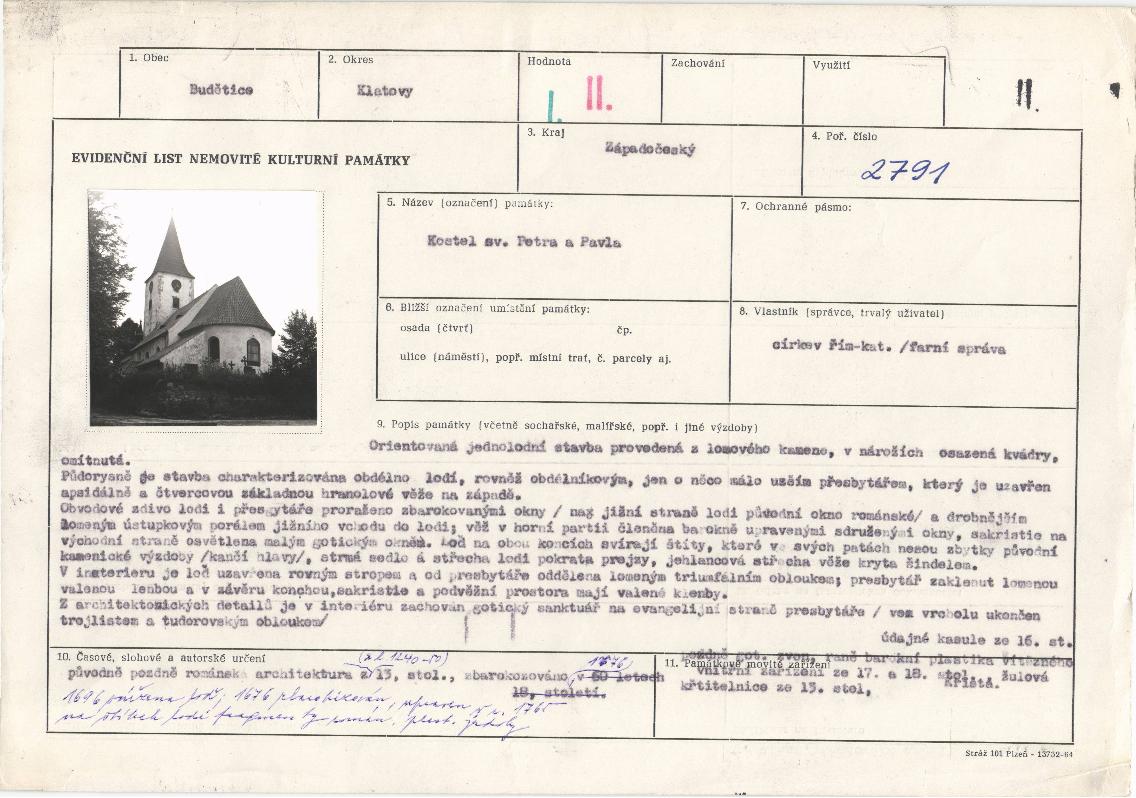 1. Obec
Budětice
2. Okres
Klatovy
Hodnota
I. II.
Zachování
Využití
II.
EVIDENČNÍ LIST NEMOVITÉ KULTURNÍ PAMÁTKY
3. Kraj
Západočeský
4. Poř. číslo
2791
5. Název (označení) památky:
Kostel sv. Petra a Pavla
7. Ochranné pásmo:
6. Bližší označení umístění památky:
osada (čtvrť) čp.
ulice (náměstí), popř. místní trať, č. parcely aj.
8. Vlastník (správce, trvalý uživatel)
církev řím-kat. /farní správa
9. Popis památky (včetně sochařské, malířské, popř. i jiné výzdoby)
Orientovaná jednolodní stavba provedená z lomového kamene, v nárožích osazená kvádry,
omítnutá.
Půdorysně je stavba charakterizována obdélno lodí, rovněž obdélníkovým, jen o něco málo uzším přesbytářem, který je uzavřen
apsidálně a čtvercovou základnou hranolové věže na západě.
Obvodové zdivo lodi i přesbytáře proraženo zbarokovanými okny / nag jižní straně lodi původní okno románské/ a drobnějším
lomeným ústupkovým porálem jižního vchodu do lodi; věž v horní partii členěna barokně upravenými sdruženými okny, sakristie na
východní straně osvětlena malým gotickým oknem. Loď na obou koncích svírají štíty, které ve svých patách nesou zbytky původní
kamenické výzdoby /kančí hlavy/, strmá sedlo á střecha lodi pokrata prejzy, jehlancová střecha věže kryta šindelem.
V insterieru je loď uzavřena rovným stropem a od presbytáře oddělena lomeným triumfálním obloukem; presbytář zaklenut lomenou
valenou lenbou a v závěru konchou,sakristie a podvěžní prostora mají valené klenby.
Z architektozických detailů je v interiéru zachován gotický sanktuář na evangelijní straně presbytáře / vez vrcholu ukončen
trojlistem a tudorovským obloukem/
údajné kasule ze 16. st.
pozdně got. zvon, raně barokní plastika vítězného
10. Časové, slohové a autorské určení
(z l. 1240-50)
1676)
11. Památkově movité zařízení
původně pozdně románská architektura z 13, stol., zbarokozováno v 60 letech
18. století.
vnitřní zařízení ze 17. a 18. stol., žulová
křtitelnice ze 13. stol, Krista.
1696 loď; 1676 upraven r. 1765
na lodi fragmenty román. plast.
Stráž 101 Plzeň - 13732-64